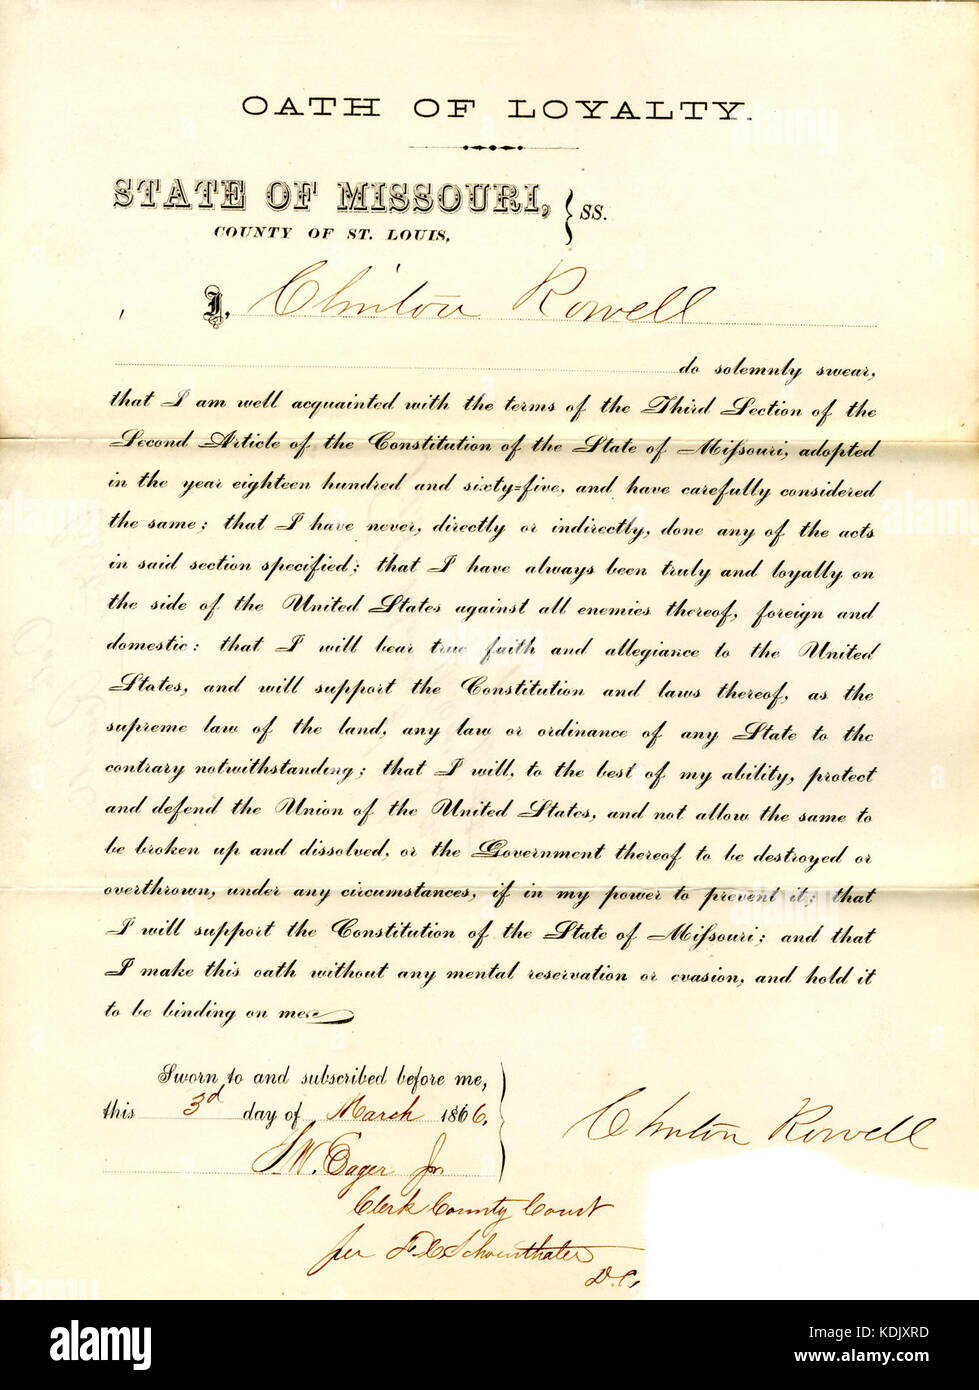 OATH OF LOYALTY.
STATE OF MISSOURI, } SS.
COUNTY OF ST. LOUIS,
I, Clinton Rowell
do solemnly swear,
that I am well acquainted with the terms of the Third Section of the
Second Article of the Constitution of the State of Mißouri, adopted
in the year eighteen hundred and sixty=five, and have carefully considered
the same; that I have never, directly or indirectly, done any of the acts
in said section specified; that I have always been truly and loyally on
the side of the United States against all enemies thereof, foreign and
domestic: that I will bear true faith and allegiance to the United
States, and will support the Constitution and laws thereof, as the
supreme law of the land, any law or ordinance of any State to the
contrary notwithstanding; that I will, to the best of my ability, protect
and defend the Union of the United States, and not allow the same to
be broken up and dissolved, or the Government thereof to be destroyed or
overthrown, under any circumstances, if in my power to prevent it; that
I will support the Constitution of the State of Mißouri; and that
I make this oath without any mental reservation or evasion, and hold it
to be binding on me.
Sworn to and subscribed before me,
this 3d day of March 1866.
Clinton Rowell
W. Eager Jr.
Clerk County Court
per Schoenthaler
D.C.
alamy
Image ID: KDJXRD
www.alamy.com